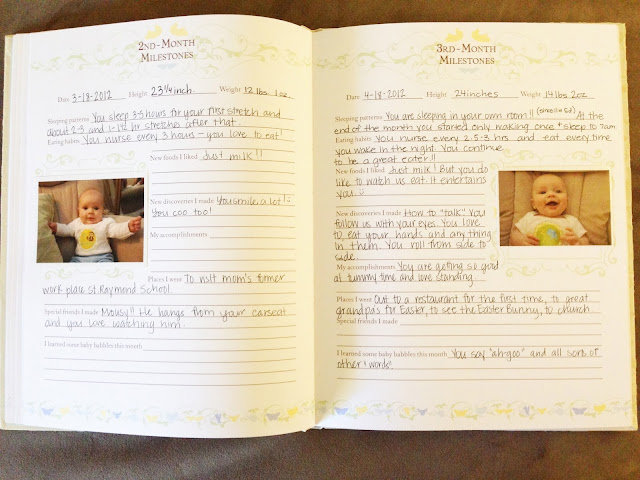 2ND-MONTH
MILESTONES
Date 3-18-2012 Height 23 1/4 inch. Weight 12 lbs. 1 oz.
Sleeping patterns You sleep 3-5 hours for your first stretch and
about 2-3 and 1-1 1/2 hr stretches after that.
Eating habits You nurse every 3 hours - you love to eat!
New foods I liked Just milk!!
New discoveries I made You smile a lot!
You coo too!
My accomplishments
Places I went To visit mom's former
work place St. Raymond School.
Special friends I made Mousy!! He hangs from your carseat
and you love watching him.
I learned some baby babbles this month
3RD-MONTH
MILESTONES
Date 4-18-2012 Height 24 inches Weight 14 lbs 2 oz
Sleeping patterns You are sleeping in your own room!! At the
end of the month you started only waking once + sleep to 7am
Eating habits You nurse every 2.5-3 hrs and eat every time
you wake in the night. You continue
to be a great eater!!
New foods I liked Just milk! But you do
like to watch us eat. It entertains
you
New discoveries I made How to "talk" You
follow us with your eyes. You love
to eat your hands and any thing
in them. You roll from side to
side.
My accomplishments You are getting so good
at tummy time and love standing.
Places I went Out to a restaurant for the first time, to great
grandpa's for Easter, to see the Easter Bunny, to church.
Special friends I made
I learned some baby babbles this month You say "ah-goo" and all sorts of
other words!